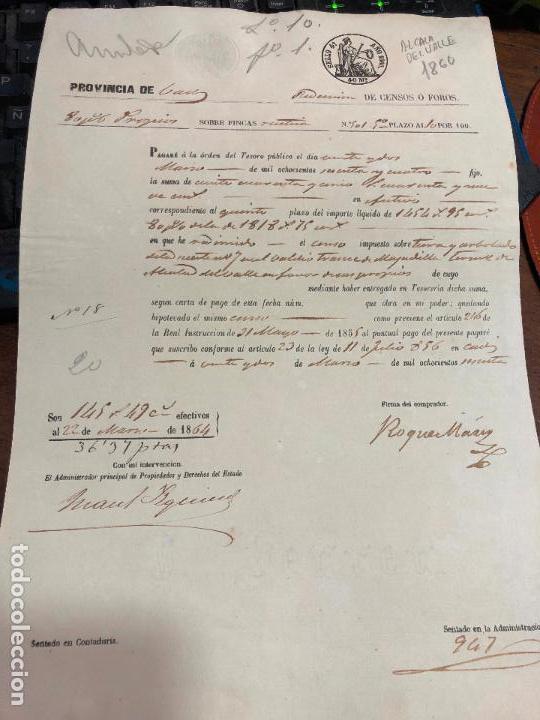 Lº 10.
fº 1.
SELLO 4º AÑO 1860.
40 Ms
ALCALA
DEL VALLE
1860
PROVINCIA DE Cadiz
Redencion DE CENSOS Ó FOROS.
Propios SOBRE FINCAS rusticas Nº 501 5º PLAZO AL 10 POR 100.
PAGARÉ á la órden del Tesoro público el dia veinte y dos
Marzo de mil ochocientos sesenta y cuatro fijo.
la suma de ciento cuarenta y cinco r. cuarenta y nueve
cent en efectivo
correspondiente al quinto plazo del importe líquido de 1454 r 95 cent
de la de 1818 r 75 cent
en que he redimido el censo impuesto sobre tierra y arbolado
termino de
Alcala del Valle en favor de sus propios de cuyo
mediante haber entregado en Tesorería dicha suma,
segun carta de pago de esta fecha núm. que obra en mi poder; quedando
hipotecado el mismo censo como previene el artículo 246 de
la Real Instruccion de 31 Mayo de 1855 al puntual pago del presente pagaré
que suscribo conforme al artículo 23 de la ley de 11 de Julio de 56 en Cadiz
á veinte y dos de Marzo de mil ochocientos sesenta
Nº 18
20
Son 145 r 49 c efectivos
al 22 de Marzo de 1864
36'37 ptas
Firma del comprador.
Roque
Con mi intervencion.
El Administrador principal de Propiedades y Derechos del Estado
Sentado en Contaduría.
Sentado en la Administracio
947
todocoleccion